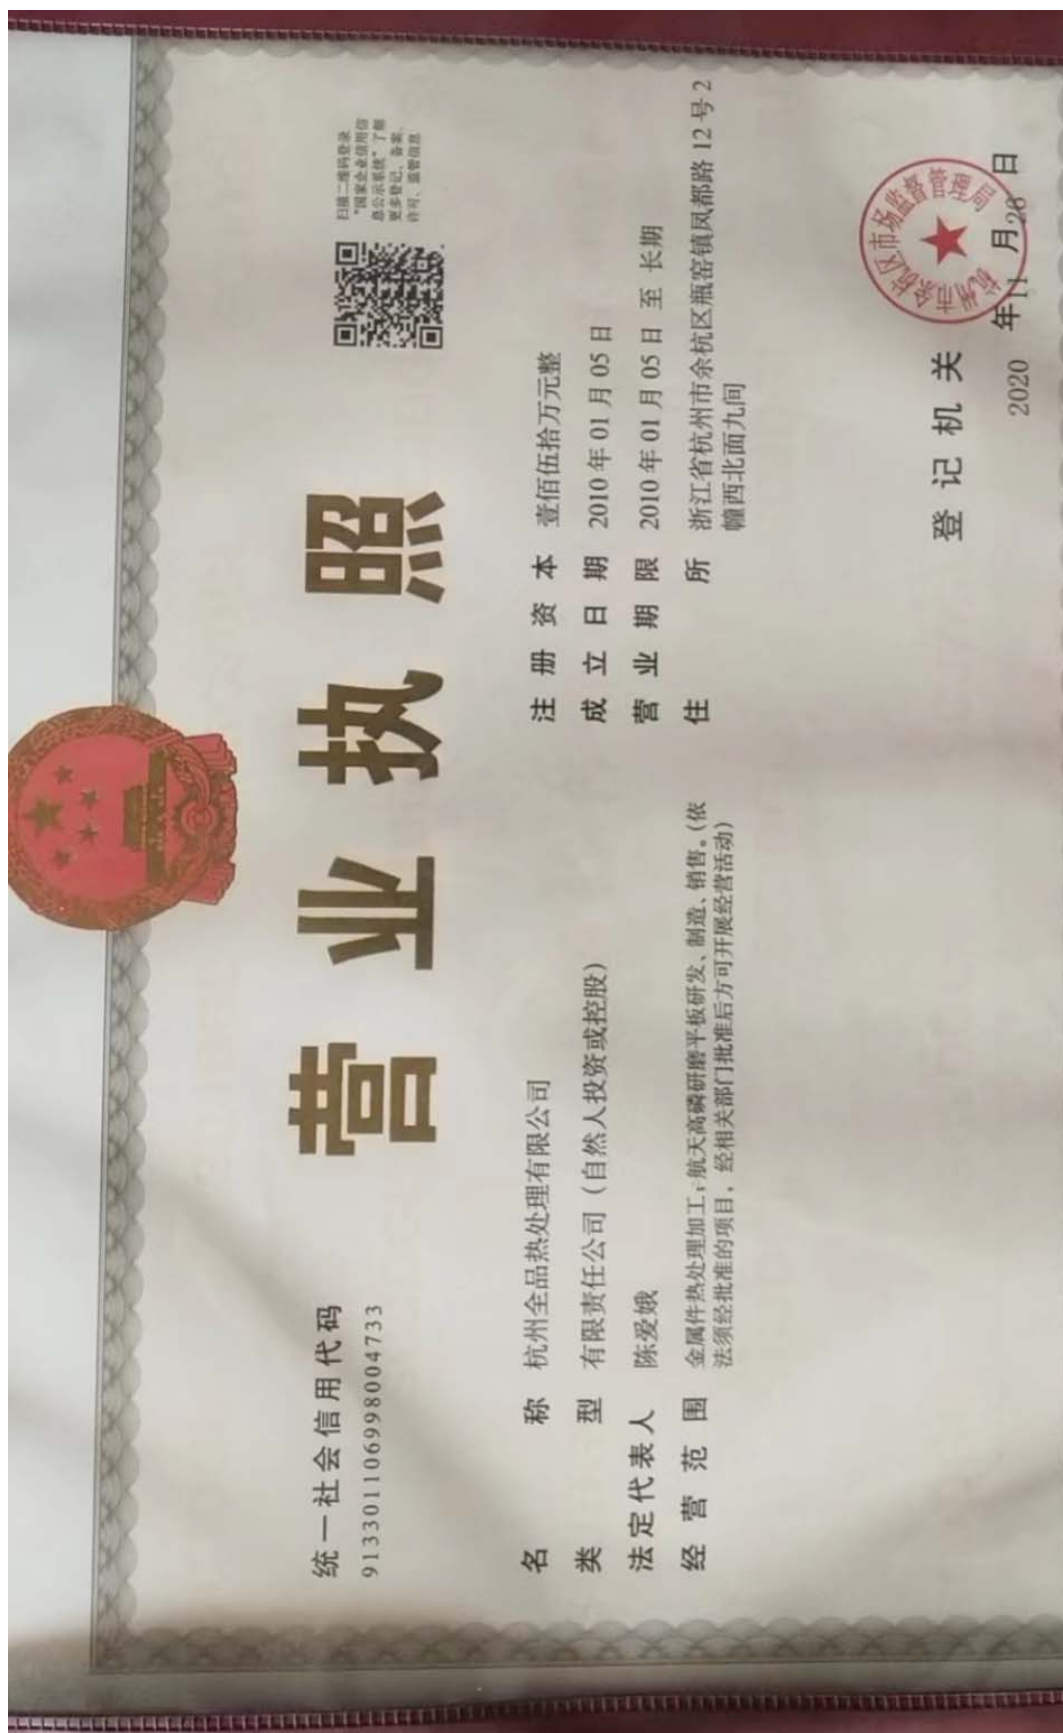 营业执照
统一社会信用代码
913301106998004733
扫描二维码登录
“国家企业信用信
息公示系统”了解
更多登记、备案、
许可、监管信息
名称 杭州全品热处理有限公司
类型 有限责任公司（自然人投资或控股）
法定代表人 陈爱娥
经营范围 金属件热处理加工；航天高磷研磨平板研发、制造、销售。（依
法须经批准的项目，经相关部门批准后方可开展经营活动）
注册资本 壹佰伍拾万元整
成立日期 2010年01月05日
营业期限 2010年01月05日至长期
住所 浙江省杭州市余杭区瓶窑镇凤都路12号2
幢西北面九间
登记机关
杭州市余杭区市场监督管理局
2020年11月26日